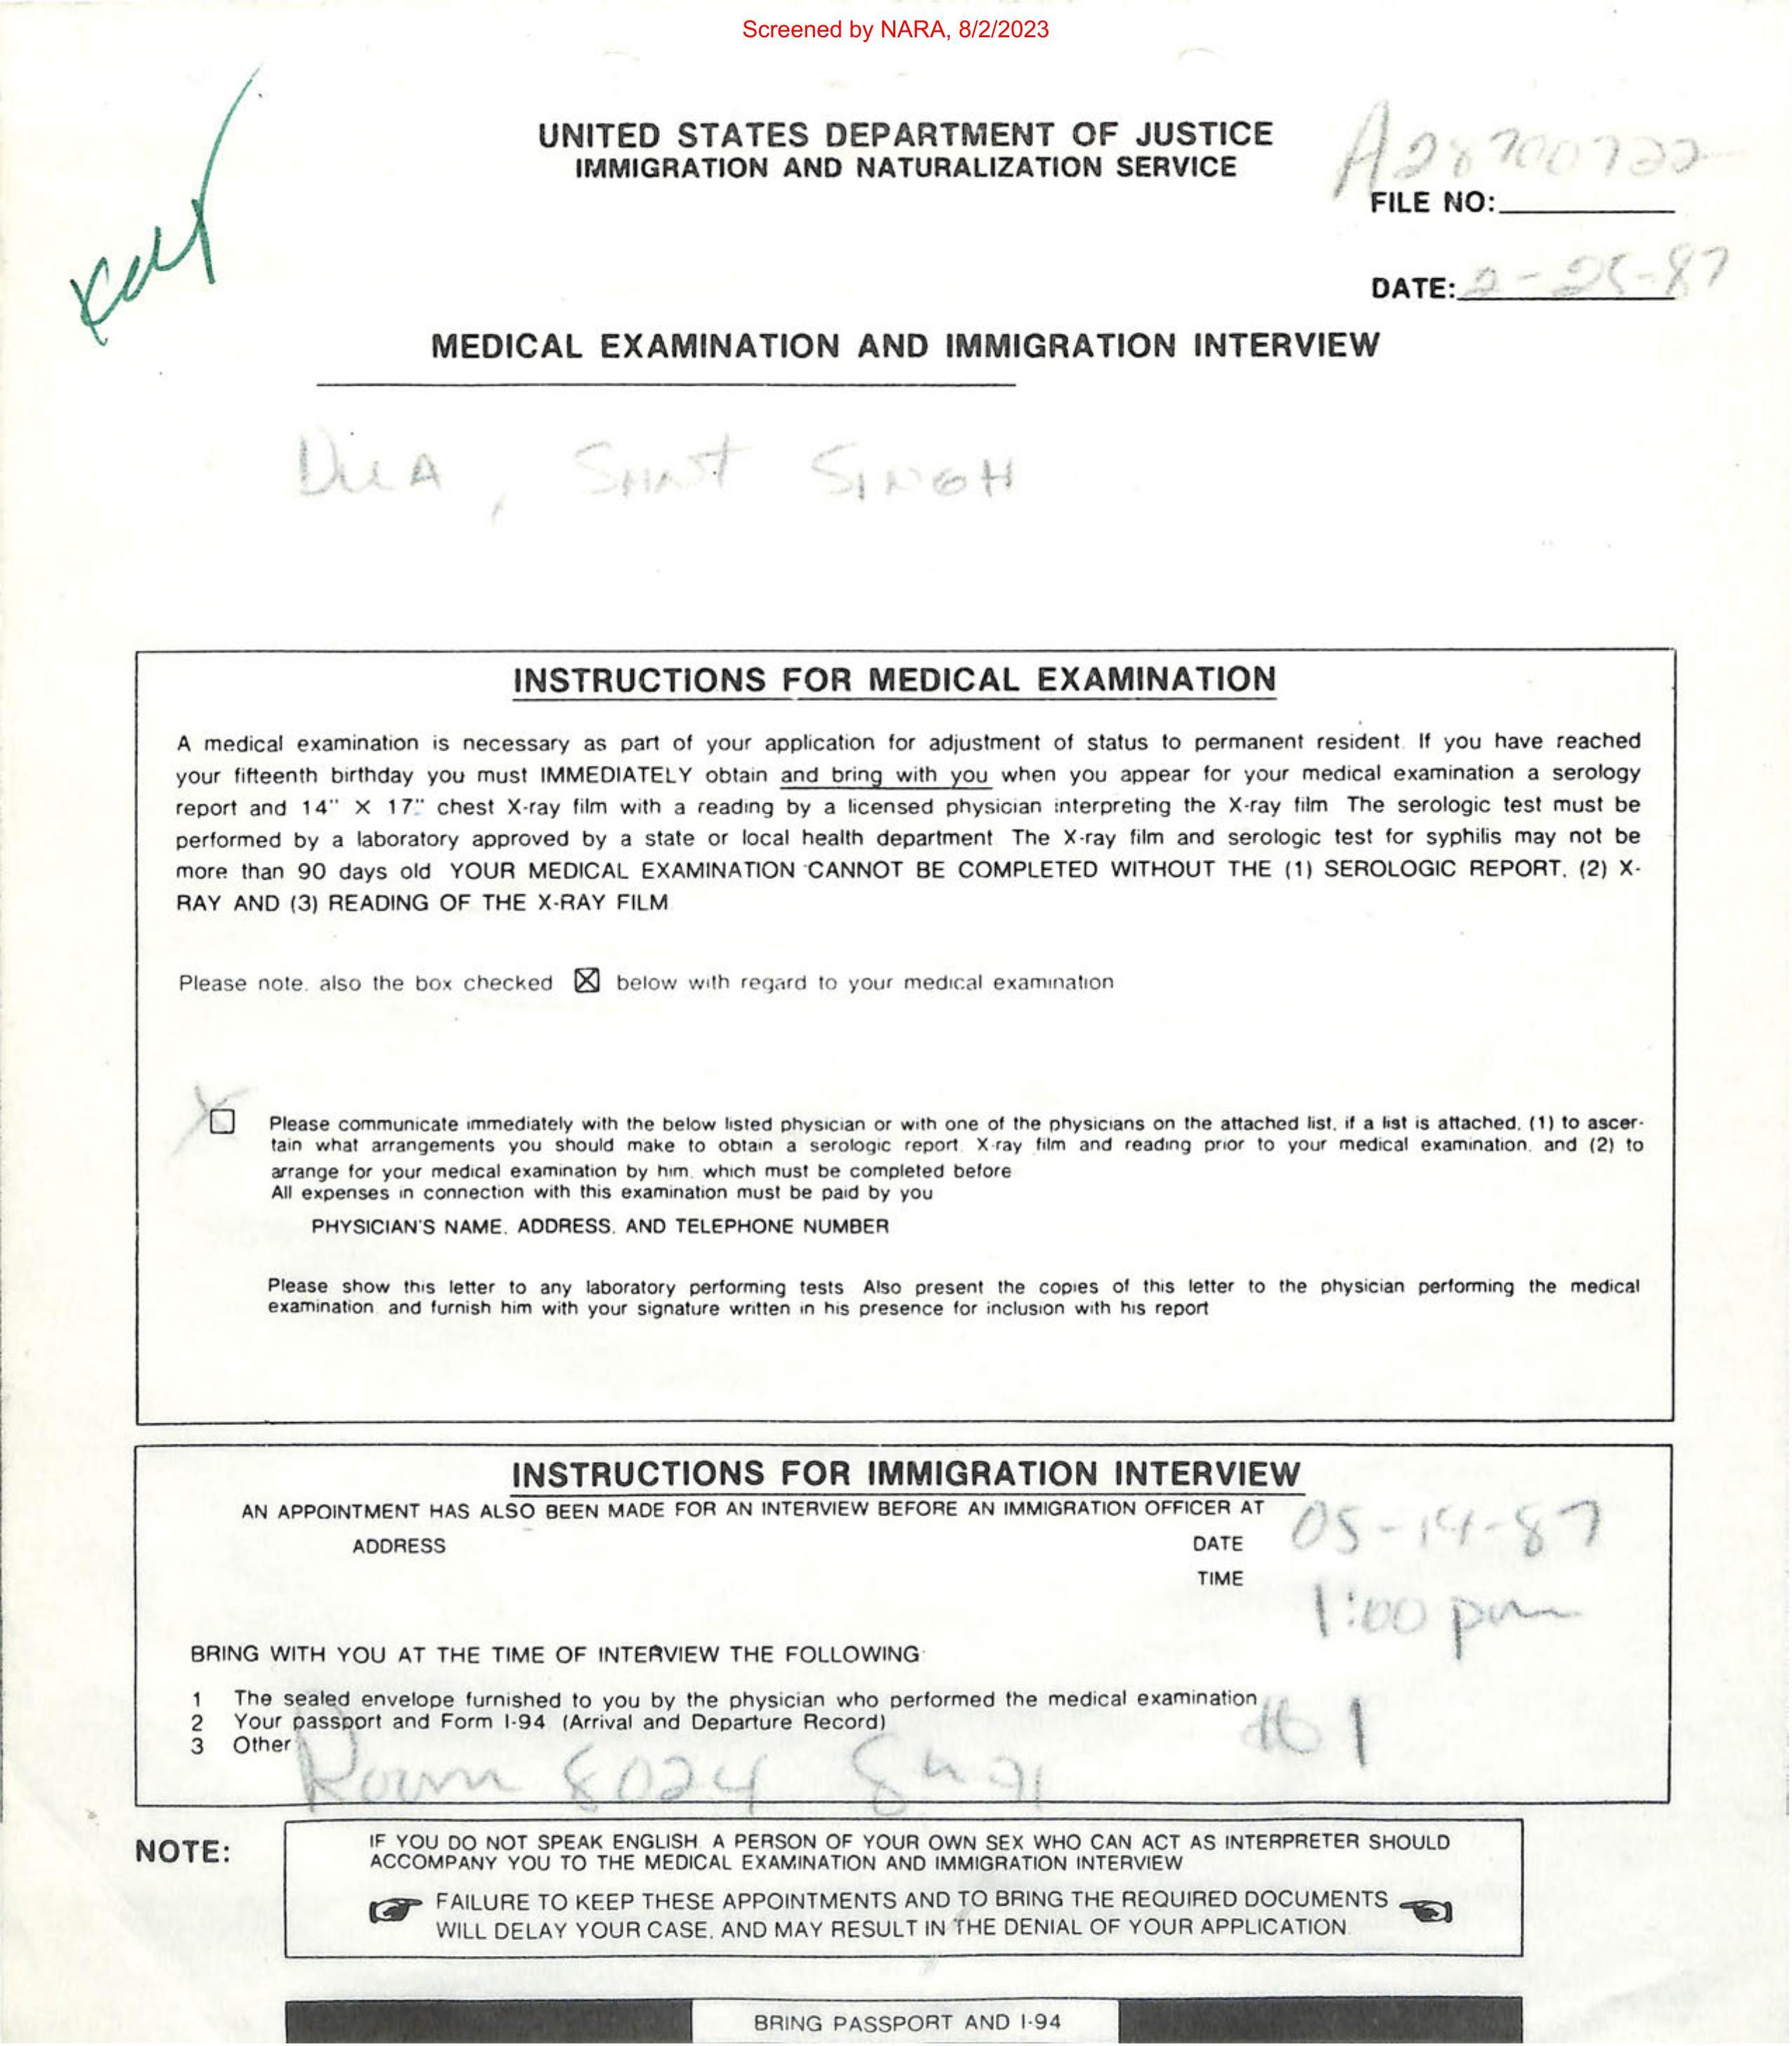 Screened by NARA, 8/2/2023
UNITED STATES DEPARTMENT OF JUSTICE
IMMIGRATION AND NATURALIZATION SERVICE
A28700722
FILE NO:
DATE: 2-25-87
MEDICAL EXAMINATION AND IMMIGRATION INTERVIEW
SINGH
INSTRUCTIONS FOR MEDICAL EXAMINATION
A medical examination is necessary as part of your application for adjustment of status to permanent resident. If you have reached
your fifteenth birthday you must IMMEDIATELY obtain and bring with you when you appear for your medical examination a serology
report and 14" X 17" chest X-ray film with a reading by a licensed physician interpreting the X-ray film The serologic test must be
performed by a laboratory approved by a state or local health department The X-ray film and serologic test for syphilis may not be
more than 90 days old YOUR MEDICAL EXAMINATION CANNOT BE COMPLETED WITHOUT THE (1) SEROLOGIC REPORT, (2) X-
RAY AND (3) READING OF THE X-RAY FILM
Please note, also the box checked ☒ below with regard to your medical examination
X ☐ Please communicate immediately with the below listed physician or with one of the physicians on the attached list, if a list is attached, (1) to ascer-
tain what arrangements you should make to obtain a serologic report, X-ray film and reading prior to your medical examination, and (2) to
arrange for your medical examination by him, which must be completed before
All expenses in connection with this examination must be paid by you
PHYSICIAN'S NAME, ADDRESS, AND TELEPHONE NUMBER
Please show this letter to any laboratory performing tests Also present the copies of this letter to the physician performing the medical
examination and furnish him with your signature written in his presence for inclusion with his report
INSTRUCTIONS FOR IMMIGRATION INTERVIEW
AN APPOINTMENT HAS ALSO BEEN MADE FOR AN INTERVIEW BEFORE AN IMMIGRATION OFFICER AT
ADDRESS
DATE 05-14-87
TIME 1:00 pm
BRING WITH YOU AT THE TIME OF INTERVIEW THE FOLLOWING:
1 The sealed envelope furnished to you by the physician who performed the medical examination
2 Your passport and Form I-94 (Arrival and Departure Record)
3 Other
Room 8024
NOTE:
IF YOU DO NOT SPEAK ENGLISH A PERSON OF YOUR OWN SEX WHO CAN ACT AS INTERPRETER SHOULD
ACCOMPANY YOU TO THE MEDICAL EXAMINATION AND IMMIGRATION INTERVIEW
FAILURE TO KEEP THESE APPOINTMENTS AND TO BRING THE REQUIRED DOCUMENTS
WILL DELAY YOUR CASE, AND MAY RESULT IN THE DENIAL OF YOUR APPLICATION
BRING PASSPORT AND I-94